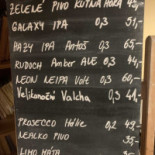 ZELENÉ PIVO KUTNÁ HORA 45,-
GALAXY IPA 0,3 51,-
HAZY IPA Antoš 0,3 65,-
RUDOCH Amber ALE 0,3 44,-
LEON LEIPA Volt 0,3 60,-
Velikonoční Valcha 0,3 49,-
PROSECCO 0,2 49,-
NEALKO PIVO 35,-
LIMO MÁTA